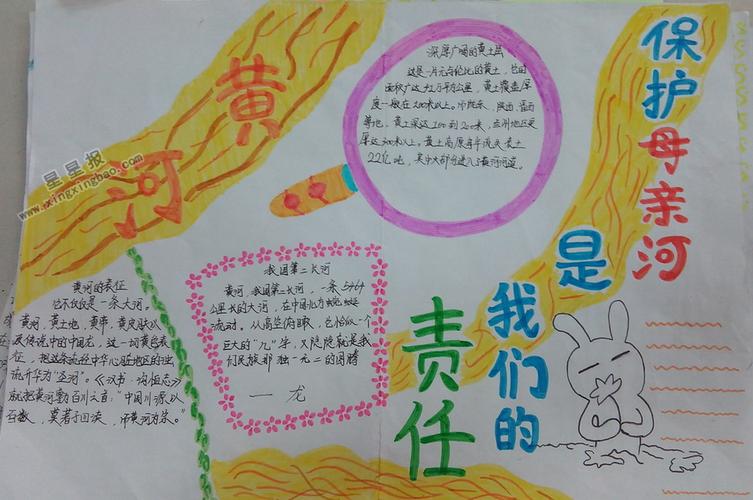 黄河
星星报
www.xingxingbao.com
深厚广阔的黄土层
这是一片无与伦比的黄土，它田
面积广达 万平方公里，黄土覆盖厚
度一般在100米以上。 陕西、晋西
等地，黄土深达100到200米，兰州地区更
厚达300米以上。黄土高原每年流失表土
22亿吨，其中大部分进入了黄河河道。
保护母亲河
是
我们的
责任
黄河的表征
它不仅仅是一条大河。
黄河，黄土地，黄帝，黄皮肤以
及传说中的中国龙，这一切黄色表
征，把这条流经中华心脏地区的浊
流升华为“圣河”。《汉书·沟恤志》
就把黄河尊为百川之首：“中国川源以
百数，莫著于四渎，而黄河为宗。”
我国第二长河
黄河，我国第二长河，一条5464
公里长的大河，在中国北方蜿蜒
流动。从高空俯瞰，它恰似一个
巨大的“几”字，又隐隐就是我
们民族那独一无二的图腾
——龙